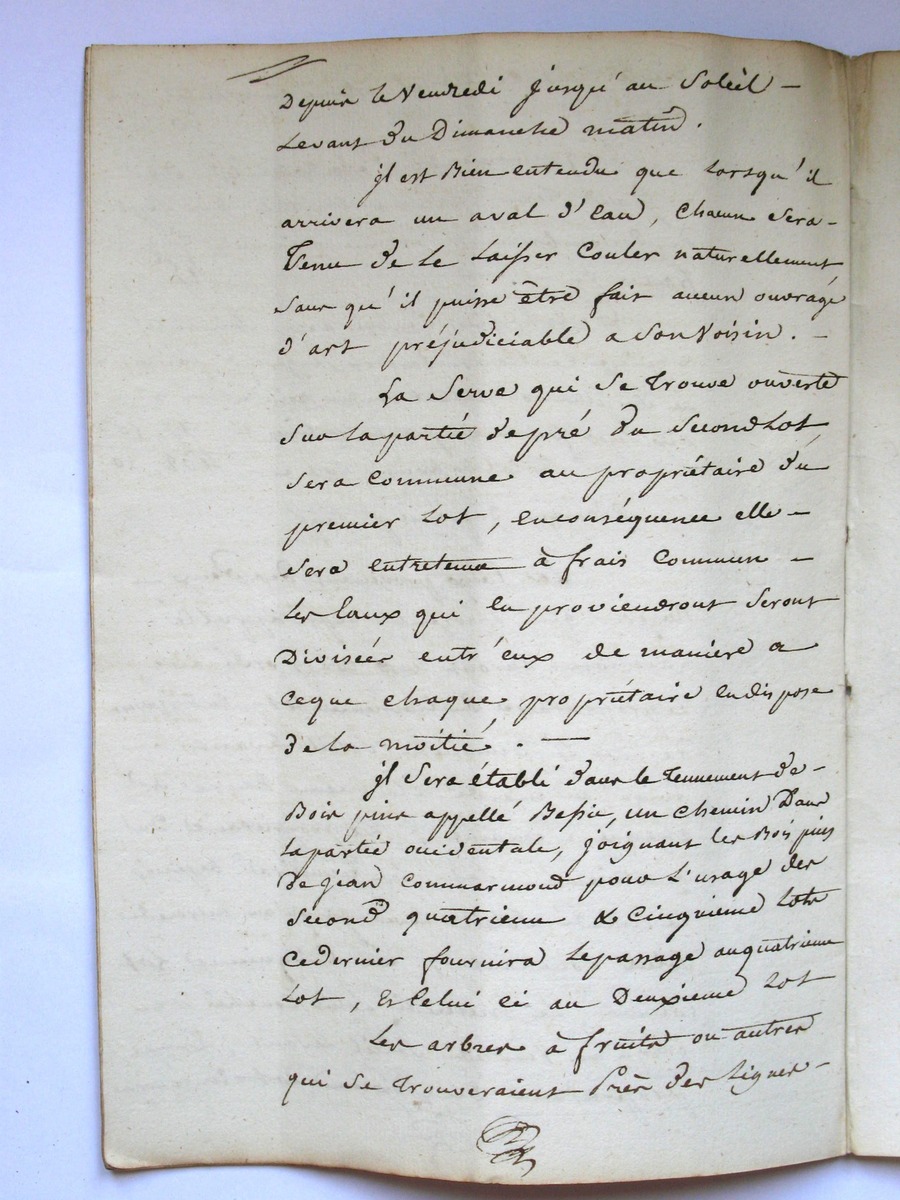 Depuis le Vendredi jusqu'au Soleil -
Levant du Dimanche matin.
jl est Bien entendu que Lorsqu'il
arrivera un aval d'eau, Chacun Sera -
Tenu de Le Laisser Couler naturellement
Sans qu'il puisse être fait aucun ouvrage
d'art préjudiciable a Son Voisin. -
La Serve qui Se Trouve ouverte
Sur la partie de pré du Second Lot
Sera Commune au propriétaire du
premier Lot, en conséquence elle -
Sera entretenue à frais Commun -
Les Eaux qui en proviendront Seront
Divisées entr'eux de manière a
ceque chaque propriétaire en dispose
de la moitié. -
jl Sera établi dans le Tennement de -
Bois pins appellé Bessie, un chemin Dans
La partie occidentale, joignant les Bois pins
De jean Commarmond pour L'usage des
Second quatrieme & Cinquieme Lots
Ce dernier fournira Le passage au quatrieme
Lot, Et Celui ci au Deuxieme Lot
Les arbres à fruits ou autres
qui Se Trouveraient Près des Lignes -